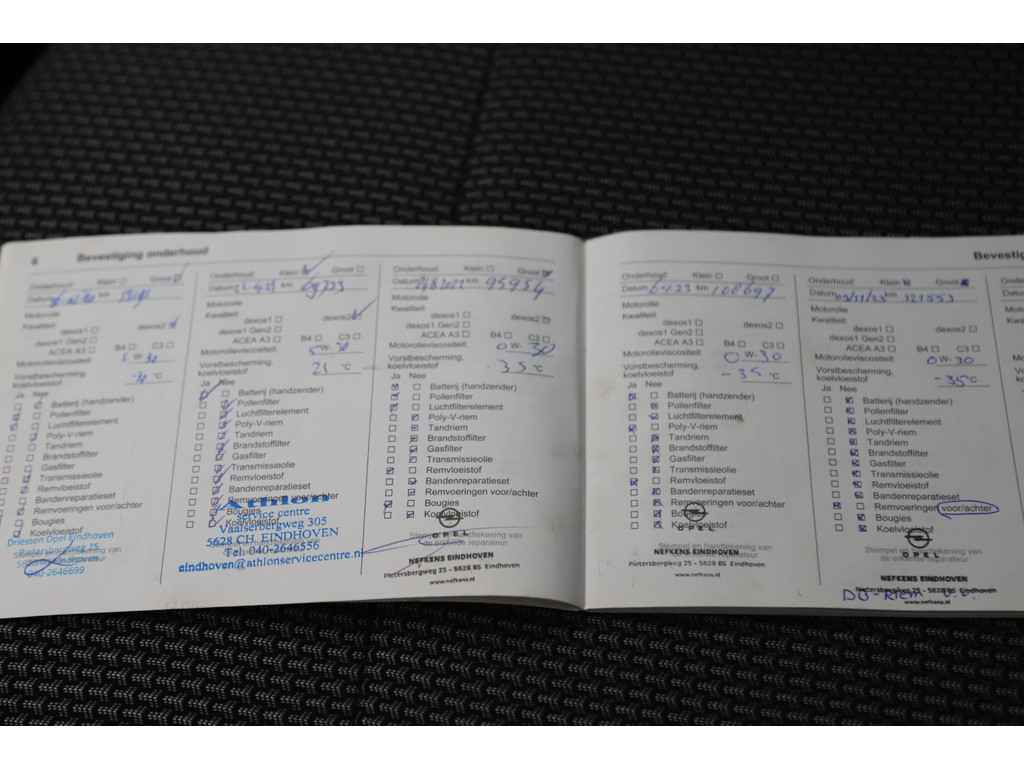 6 Bevestiging onderhoud
Onderhoud: Klein Groot
Datum km
Motorolie
Kwaliteit
dexos1 dexos2
dexos1 Gen2
ACEA A3 B4 C3
Motorolieviscositeit 5 W-30
Vorstbescherming,
koelvloeistof -30 °C
Ja Nee
Batterij (handzender)
Pollenfilter
Luchtfilterelement
Poly-V-riem
Tandriem
Brandstoffilter
Gasfilter
Transmissieolie
Remvloeistof
Bandenreparatieset
Remvoeringen voor/achter
Bougies
Koelvloeistof
Driessen Opel Eindhoven
Pietersbergweg 25
040-2646699
Onderhoud: Klein Groot
Datum km 69723
Motorolie
Kwaliteit
dexos1 dexos2
dexos1 Gen2
ACEA A3 B4 C3
Motorolieviscositeit 5W-30
Vorstbescherming,
koelvloeistof 21 °C
Ja Nee
Batterij (handzender)
Pollenfilter
Luchtfilterelement
Poly-V-riem
Tandriem
Brandstoffilter
Gasfilter
Transmissieolie
Remvloeistof
Bandenreparatieset
Remvoeringen voor/achter
Bougies
Koelvloeistof
Athlon
service centre
Vaalserbergweg 305
5628 CH EINDHOVEN
Tel: 040-2646556
eindhoven@athlonservicecentre.nl
Onderhoud: Klein Groot
Datum km 95954
Motorolie
Kwaliteit
dexos1 dexos2
dexos1 Gen2
ACEA A3 B4 C3
Motorolieviscositeit 0 W-30
Vorstbescherming,
koelvloeistof 35 °C
Ja Nee
Batterij (handzender)
Pollenfilter
Luchtfilterelement
Poly-V-riem
Tandriem
Brandstoffilter
Gasfilter
Transmissieolie
Remvloeistof
Bandenreparatieset
Remvoeringen voor/achter
Bougies
Koelvloeistof
OPEL
Stempel en handtekening van
de erkende reparateur
NEFKENS EINDHOVEN
Pietersbergweg 25 - 5628 BS Eindhoven
www.nefkens.nl
Bevestig
Onderhoud: Klein Groot
Datum km 108697
Motorolie
Kwaliteit
dexos1 dexos2
dexos1 Gen2
ACEA A3 B4 C3
Motorolieviscositeit 0 W-30
Vorstbescherming,
koelvloeistof -35 °C
Ja Nee
Batterij (handzender)
Pollenfilter
Luchtfilterelement
Poly-V-riem
Tandriem
Brandstoffilter
Gasfilter
Transmissieolie
Remvloeistof
Bandenreparatieset
Remvoeringen voor/achter
Bougies
Koelvloeistof
OPEL
Stempel en handtekening van
de erkende reparateur
NEFKENS EINDHOVEN
Pietersbergweg 25 - 5628 BS Eindhoven
www.nefkens.nl
Onderhoud: Klein Groot
Datum km 121553
Motorolie
Kwaliteit
dexos1 dexos2
dexos1 Gen2
ACEA A3 B4 C3
Motorolieviscositeit 0W-30
Vorstbescherming,
koelvloeistof -35°C
Ja Nee
Batterij (handzender)
Pollenfilter
Luchtfilterelement
Poly-V-riem
Tandriem
Brandstoffilter
Gasfilter
Transmissieolie
Remvloeistof
Bandenreparatieset
Remvoeringen voor/achter
Bougies
Koelvloeistof
OPEL
Stempel en handtekening van
de erkende reparateur
NEFKENS EINDHOVEN
Pietersbergweg 25 - 5628 BS Eindhoven
www.nefkens.nl